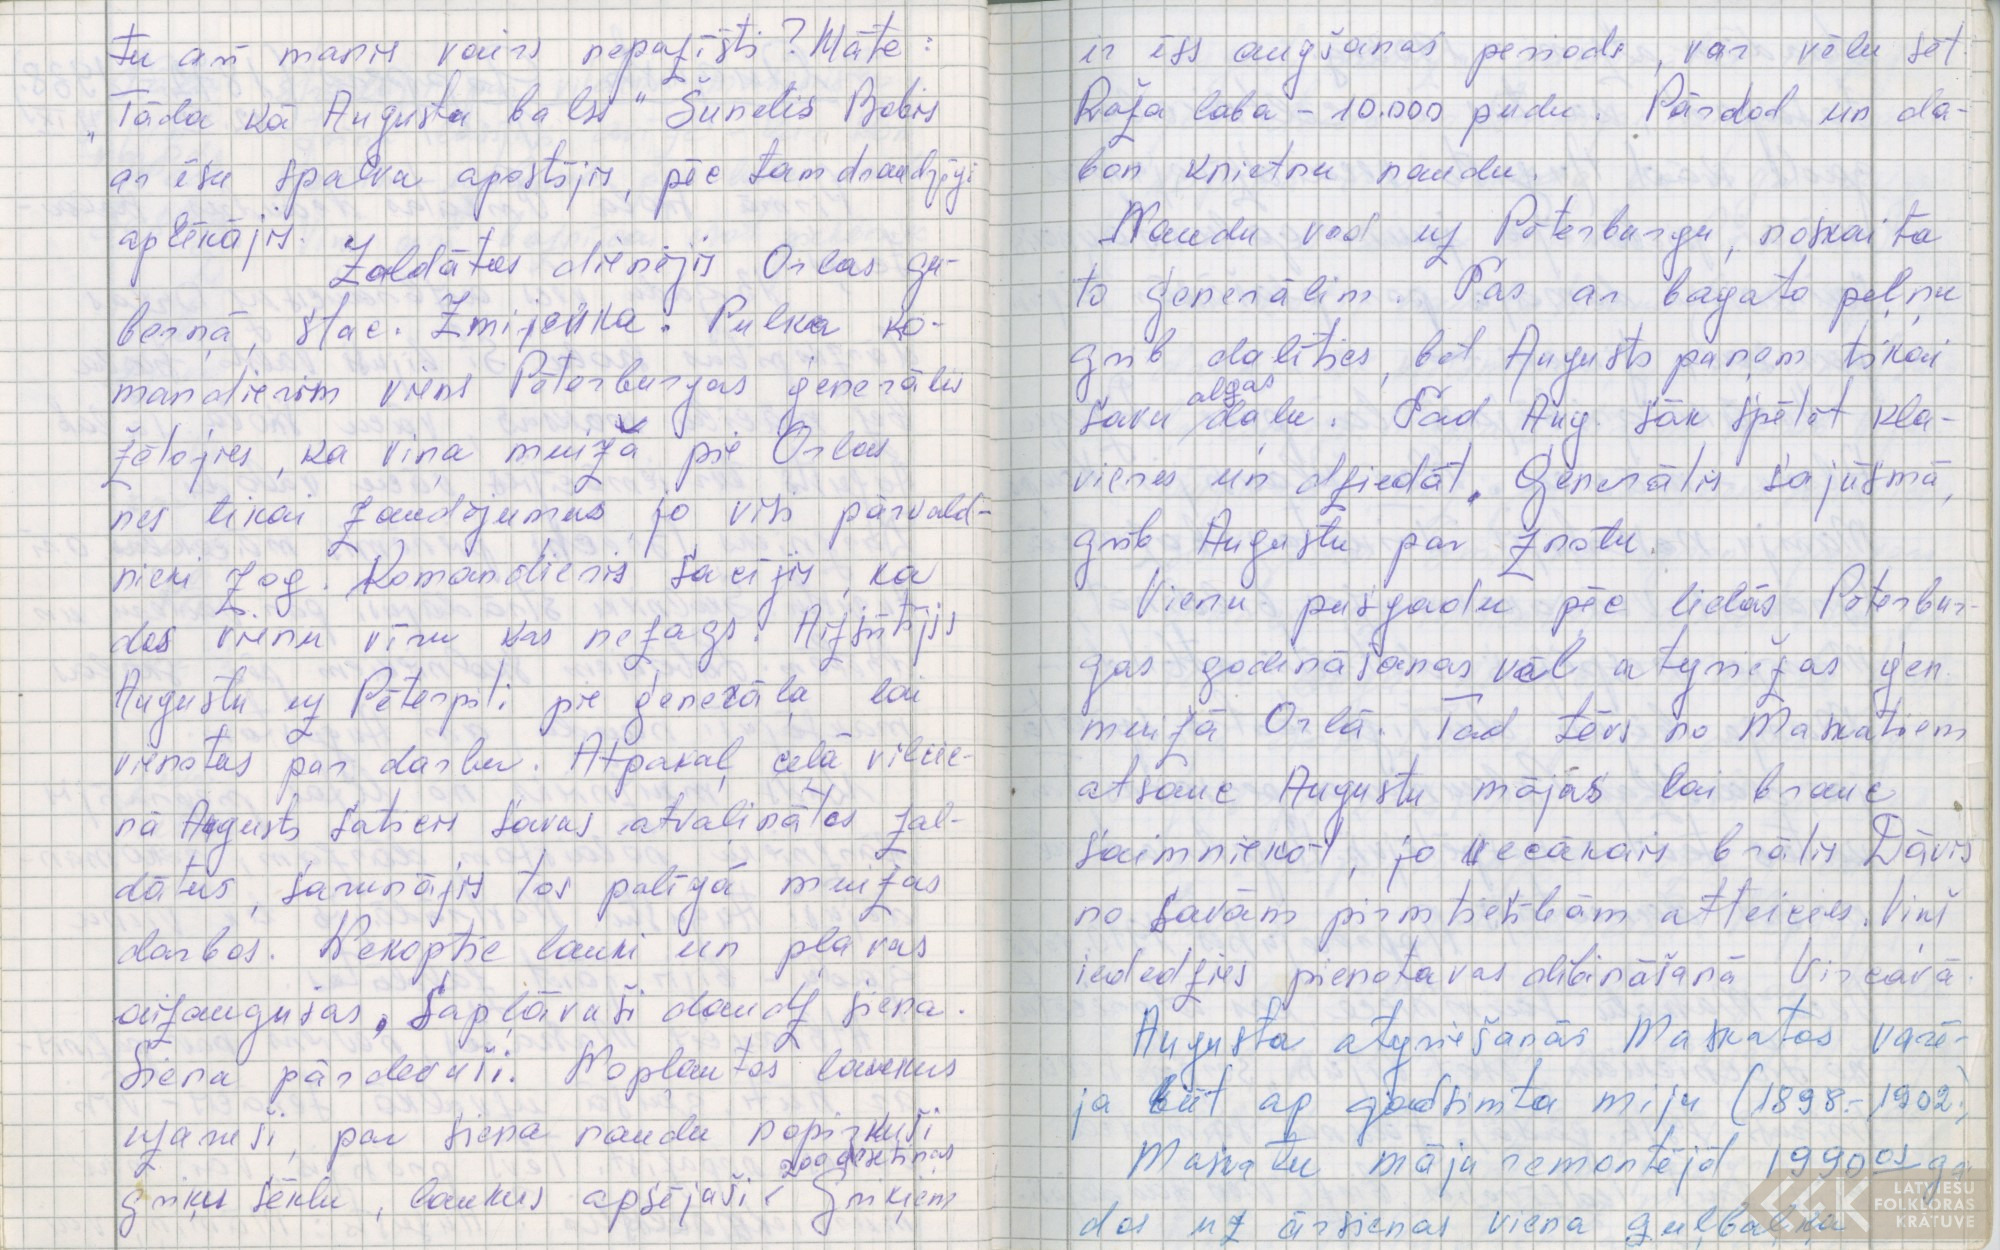 tu arī manis vairs nepazīsti? Māte:
„Tāda kā Augusta balss" Sunelis Bobis
ar ēsu spalvu apostījis, pēc tam draudzīgi
aplēkājis.
Zaldātos dienējis Orlas gu-
berņā, stac. Zmijevka. Pulka ko-
mandierim viens Pēterburgas ģenerālis
žēlojies, ka viņa muižā pie Orlas
nes tikai zaudējumus, jo visi pārvald-
nieki zog. Komandieris sacījis, ka
dos vienu vīru kas nezags. Aizsūtījis
Augustu uz Pēterpili pie ģenerāļa lai
vienotas par darbu. Atpakaļ ceļā vilcie-
nā Augusts saticis savus atvaļinātos zal-
dātus, sarunājis tos palīgā muižas
darbos. Nekoptie lauki un pļavas
aizaugušas, Sapļāvuši daudz siena.
Sienu pārdevuši. Nopļautos laukus
uzaruši, par siena naudu nopirkuši
200 desetinas
griķu sēklu, laukus apsējuši. Griķiem
ir īss augšanas periods, var vēlu sēt.
Raža laba - 10.000 pudu. Pārdod un da-
bon krietnu naudu.
Naudu ved uz Pēterburgu, noskaita
to ģenerālim. Tas ar bagāto peļņu
grib dalīties, bet Augusts paņem tikai
algas
savu daļu. Tad Aug. sāk spēlēt kla-
vieres un dziedāt. Ģenerālis sajūsmā,
grib Augustu par znotu.
Vienu pusgadu pēc lielās Pēterbur-
gas godināšanas vēl atgriežas ģen.
muižā Orlā. Tad tēvs no Maskatiem
atsauc Augustu mājās lai brauc
saimniekot, jo vecākais brālis Dāvis
no savām pirmtiesībām atteicies. Viņš
iededzies pienotavas dibināšanā Vircavā.
Augusta atgriešanās Maskatos varē-
ja būt ap gadsimta miju (1898.-1902.)
Maskatu māju remontējot 1990os ga
dos uz ārsienas viena guļbaļķa
LATVIEŠU
FOLKLORAS
KRĀTUVE